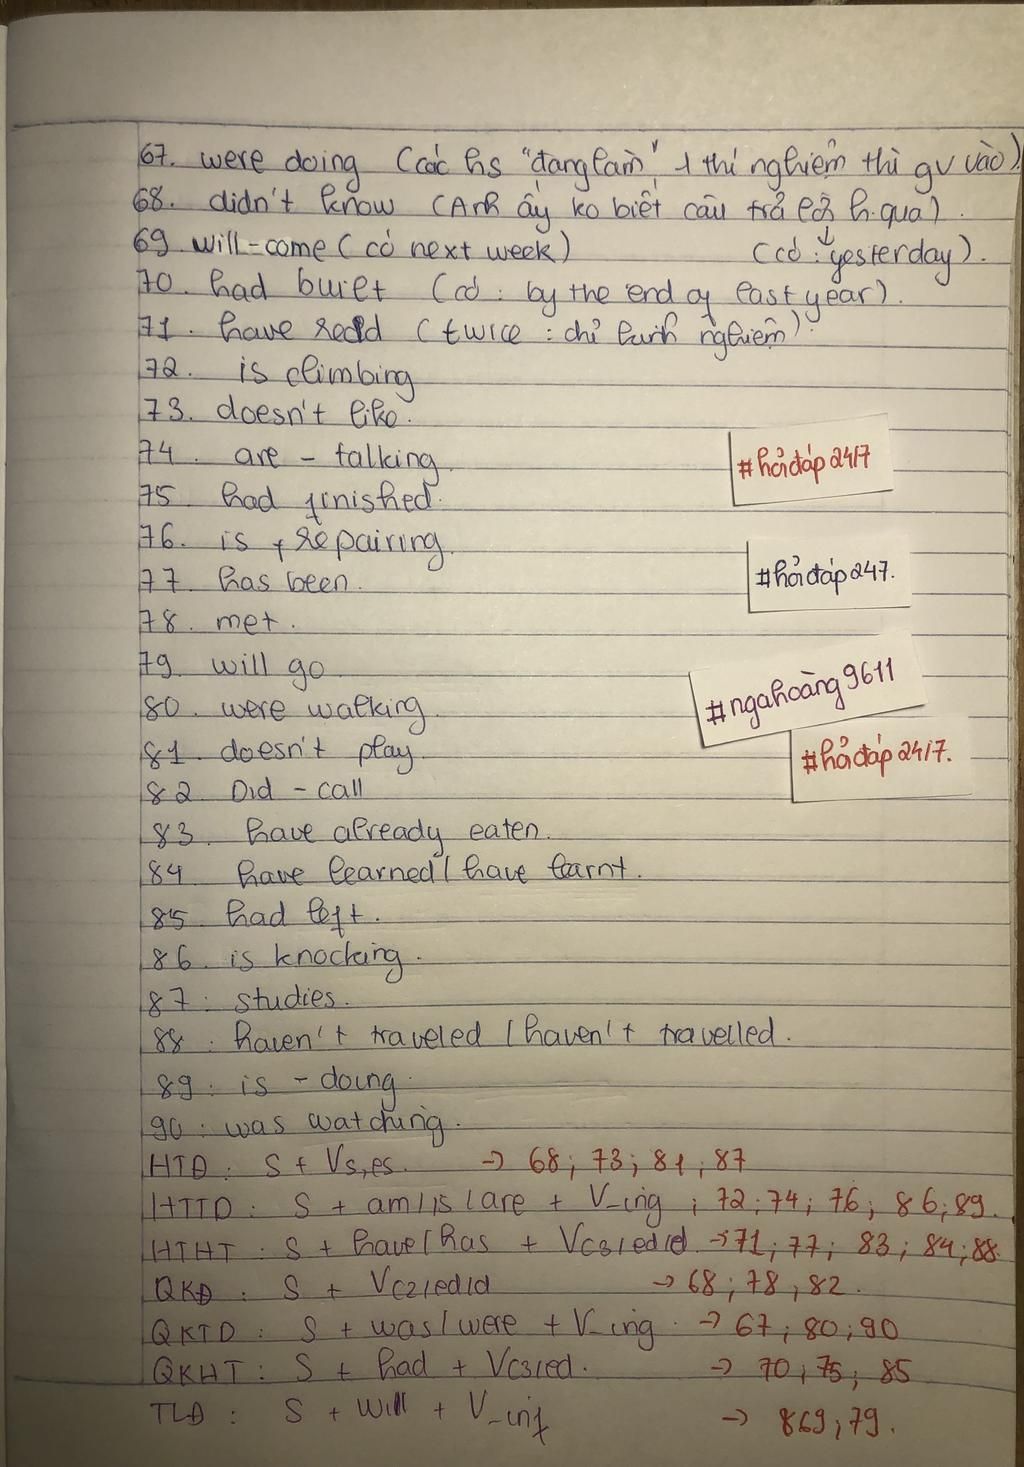 67. were doing (các hs "đang làm" 1 thí nghiệm thì gv vào)
68. didn't know (Anh ấy ko biết câu trả lời h.qua).
69. will-come (có next week) (có: yesterday).
70. had built (có: by the end of last year).
71. have read (twice: chỉ kinh nghiệm).
72. is climbing
73. doesn't like.
74. are - talking.
75. had finished.
76. is + repairing.
77. has been.
78. met.
79. will go
80. were walking.
81. doesn't play
82. Did - call
83. have already eaten.
84. have learned / have learnt.
85. had left.
86. is knocking.
87. studies.
88. haven't traveled / haven't travelled.
89. is - doing.
90. was watching.
HTĐ: S + Vs,es. -> 68; 73; 81; 87
HTTD: S + am/is/are + V_ing; 72; 74; 76; 86; 89.
HTHT: S + have/has + Vc3/ed/d -> 71; 77; 83; 84; 88.
QKĐ: S + Vc2/ed/d -> 68; 78; 82.
QKTD: S + was/were + V_ing. -> 67; 80; 90
QKHT: S + had + Vc3/ed. -> 70; 75; 85
TLĐ: S + will + V_inf -> 869; 79.
#hỏiđáp24/7
#hỏiđáp247.
#ngahoàng9611
#hỏiđáp24/7.